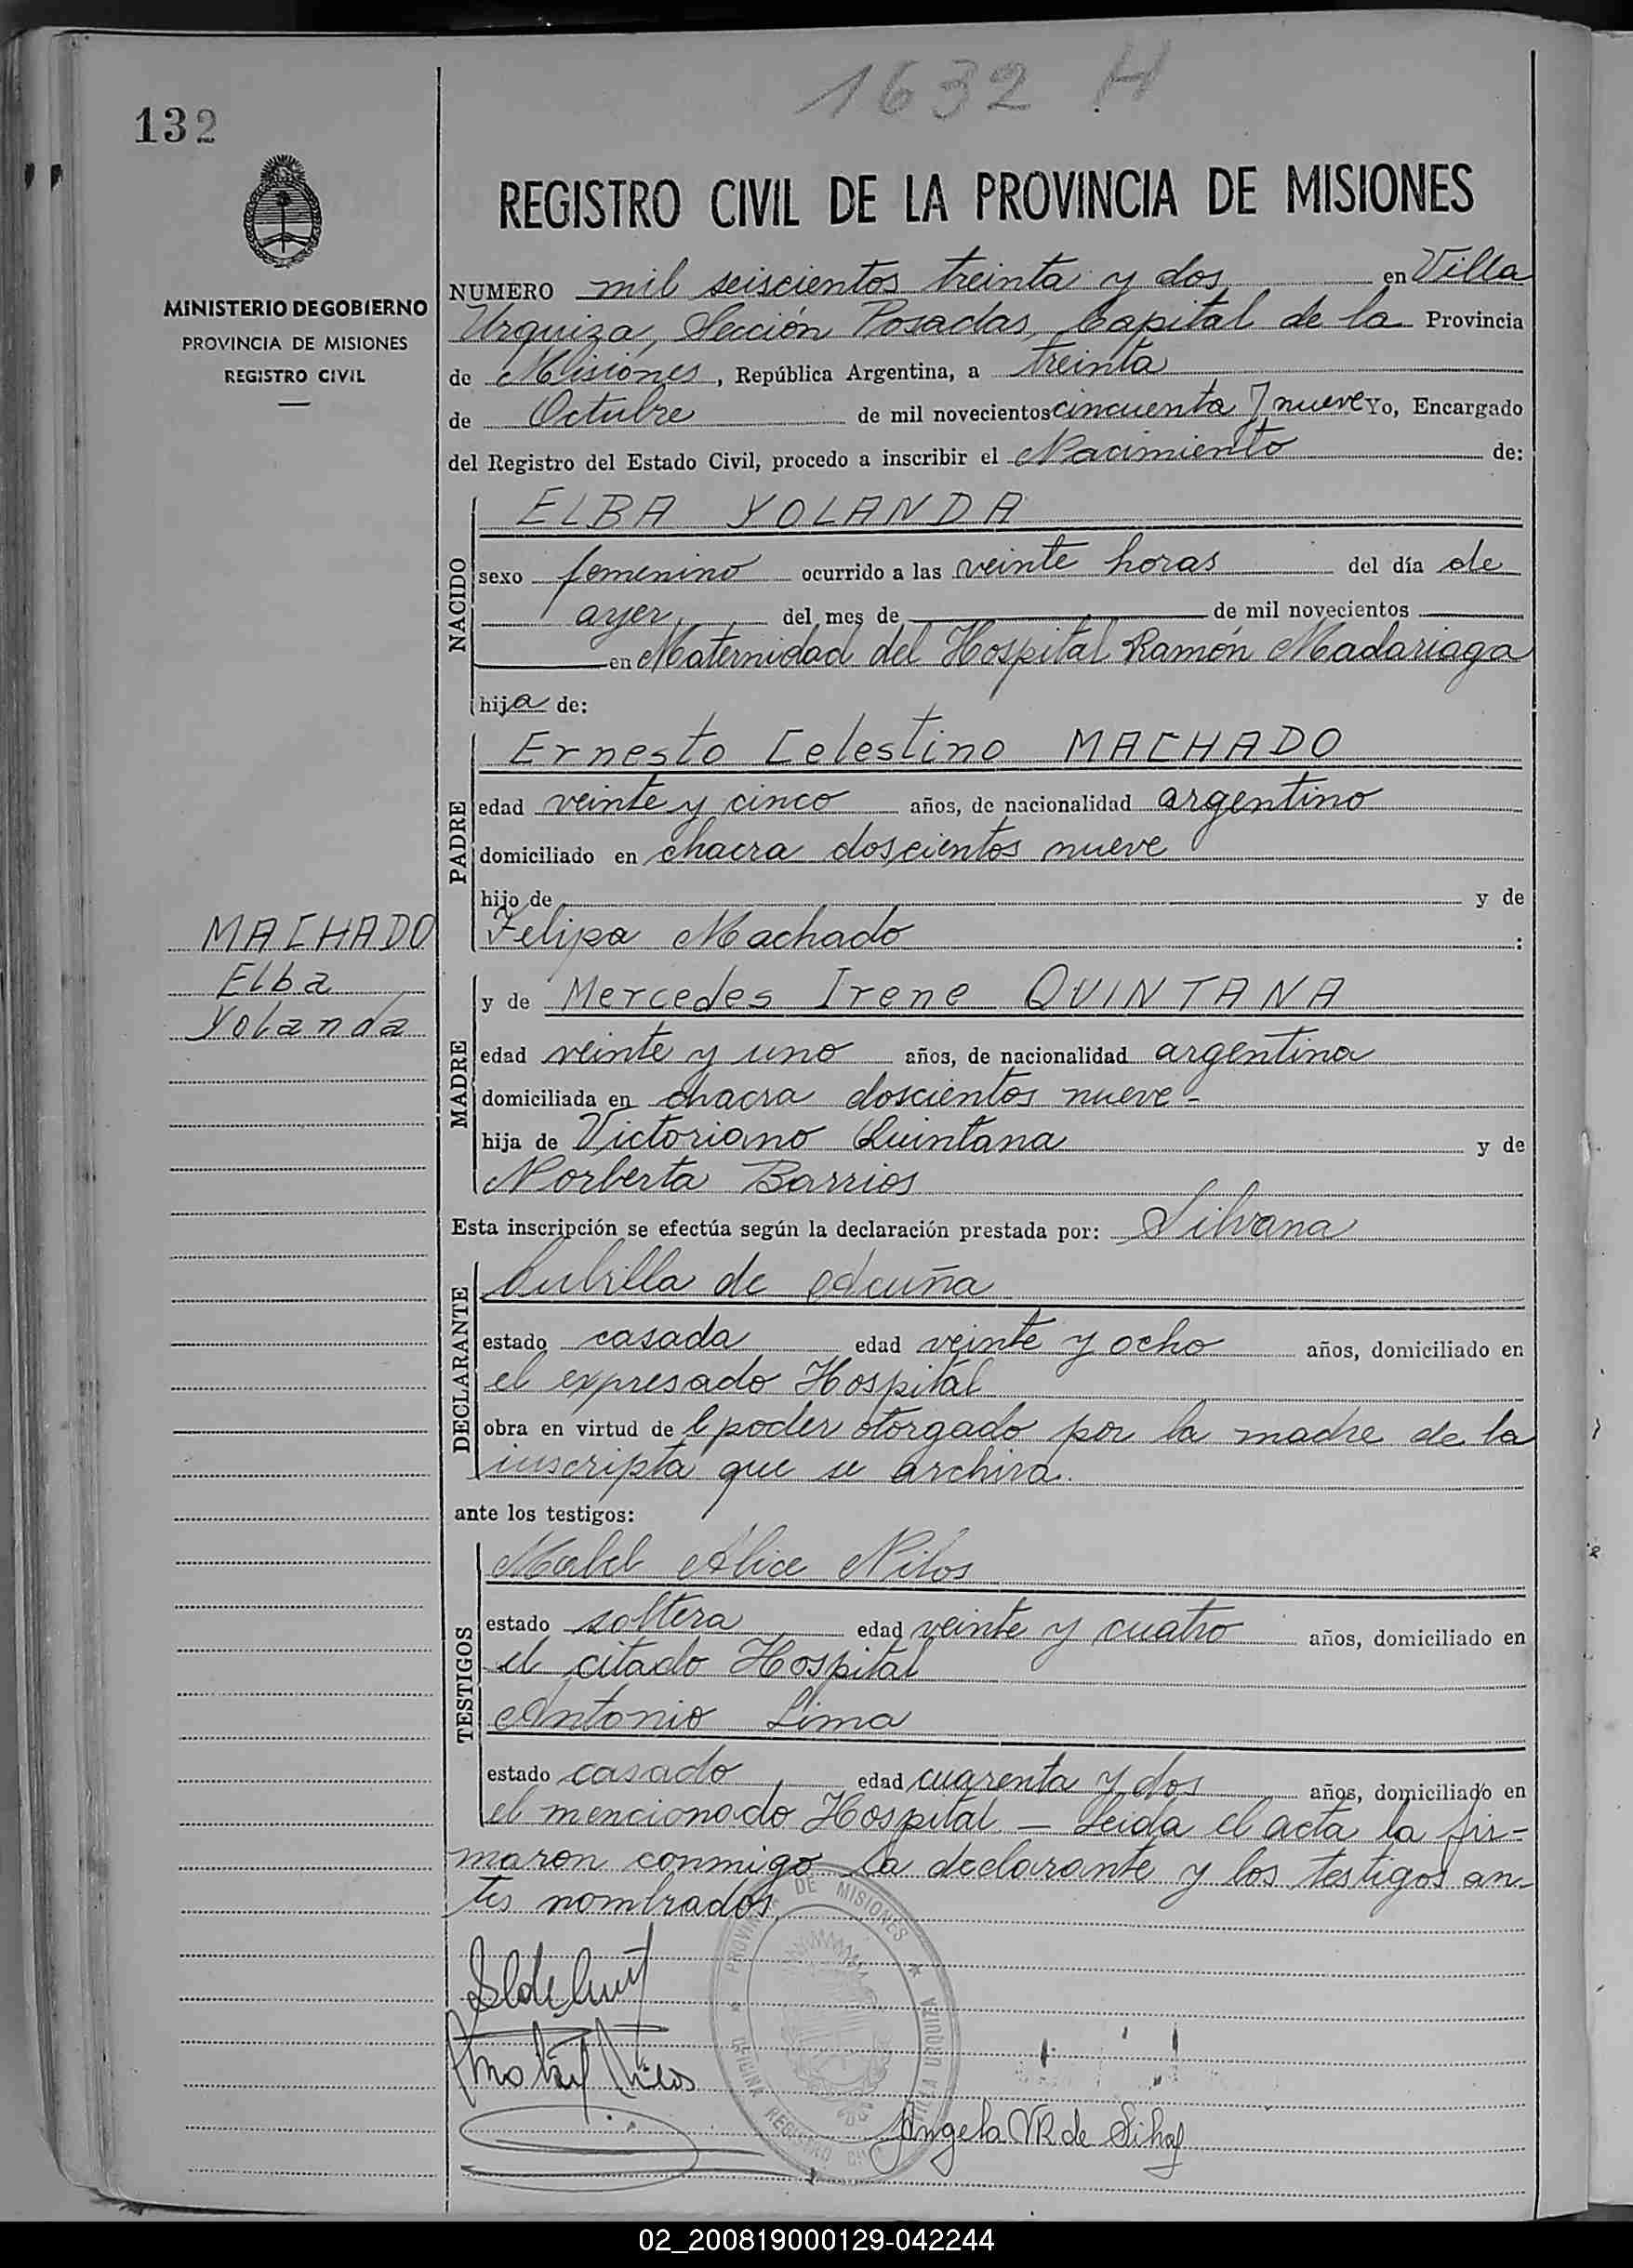 1632 H
132
REGISTRO CIVIL DE LA PROVINCIA DE MISIONES
MINISTERIO DE GOBIERNO
PROVINCIA DE MISIONES
REGISTRO CIVIL
NUMERO mil seiscientos treinta y dos en Villa
Urquiza, Sección Posadas, Capital de la Provincia
de Misiones, República Argentina, a treinta
de Octubre de mil novecientos cincuenta y nueve Yo, Encargado
del Registro del Estado Civil, procedo a inscribir el Nacimiento de:
NACIDO
ELBA YOLANDA
sexo femenino ocurrido a las veinte horas del día de
ayer, del mes de de mil novecientos
en Maternidad del Hospital Ramón Madariaga
hija de:
PADRE
Ernesto Celestino MACHADO
edad veinte y cinco años, de nacionalidad argentino
domiciliado en chacra doscientos nueve
hijo de y de
Felipa Machado :
MACHADO
Elba
Yolanda
MADRE
y de Mercedes Irene QUINTANA
edad veinte y uno años, de nacionalidad argentina
domiciliada en chacra doscientos nueve-
hija de Victoriano Quintana y de
Norberta Barrios
Esta inscripción se efectúa según la declaración prestada por: Silvana
DECLARANTE
Cubilla de Acuña
estado casada edad veinte y ocho años, domiciliado en
el expresado Hospital
obra en virtud de l poder otorgado por la madre de la
inscripta que se archiva.
ante los testigos:
TESTIGOS
Mabel Alice Nilos
estado soltera edad veinte y cuatro años, domiciliado en
el citado Hospital
Antonio Lima
estado casado edad cuarenta y dos años, domiciliado en
el mencionado Hospital — Leida el acta la fir-
maron conmigo la declarante y los testigos an-
tes nombrados.
PROVINCIA DE MISIONES
OFICINA REGISTRO CIVIL
VILLA URQUIZA
Angela VR de
02_200819000129-042244